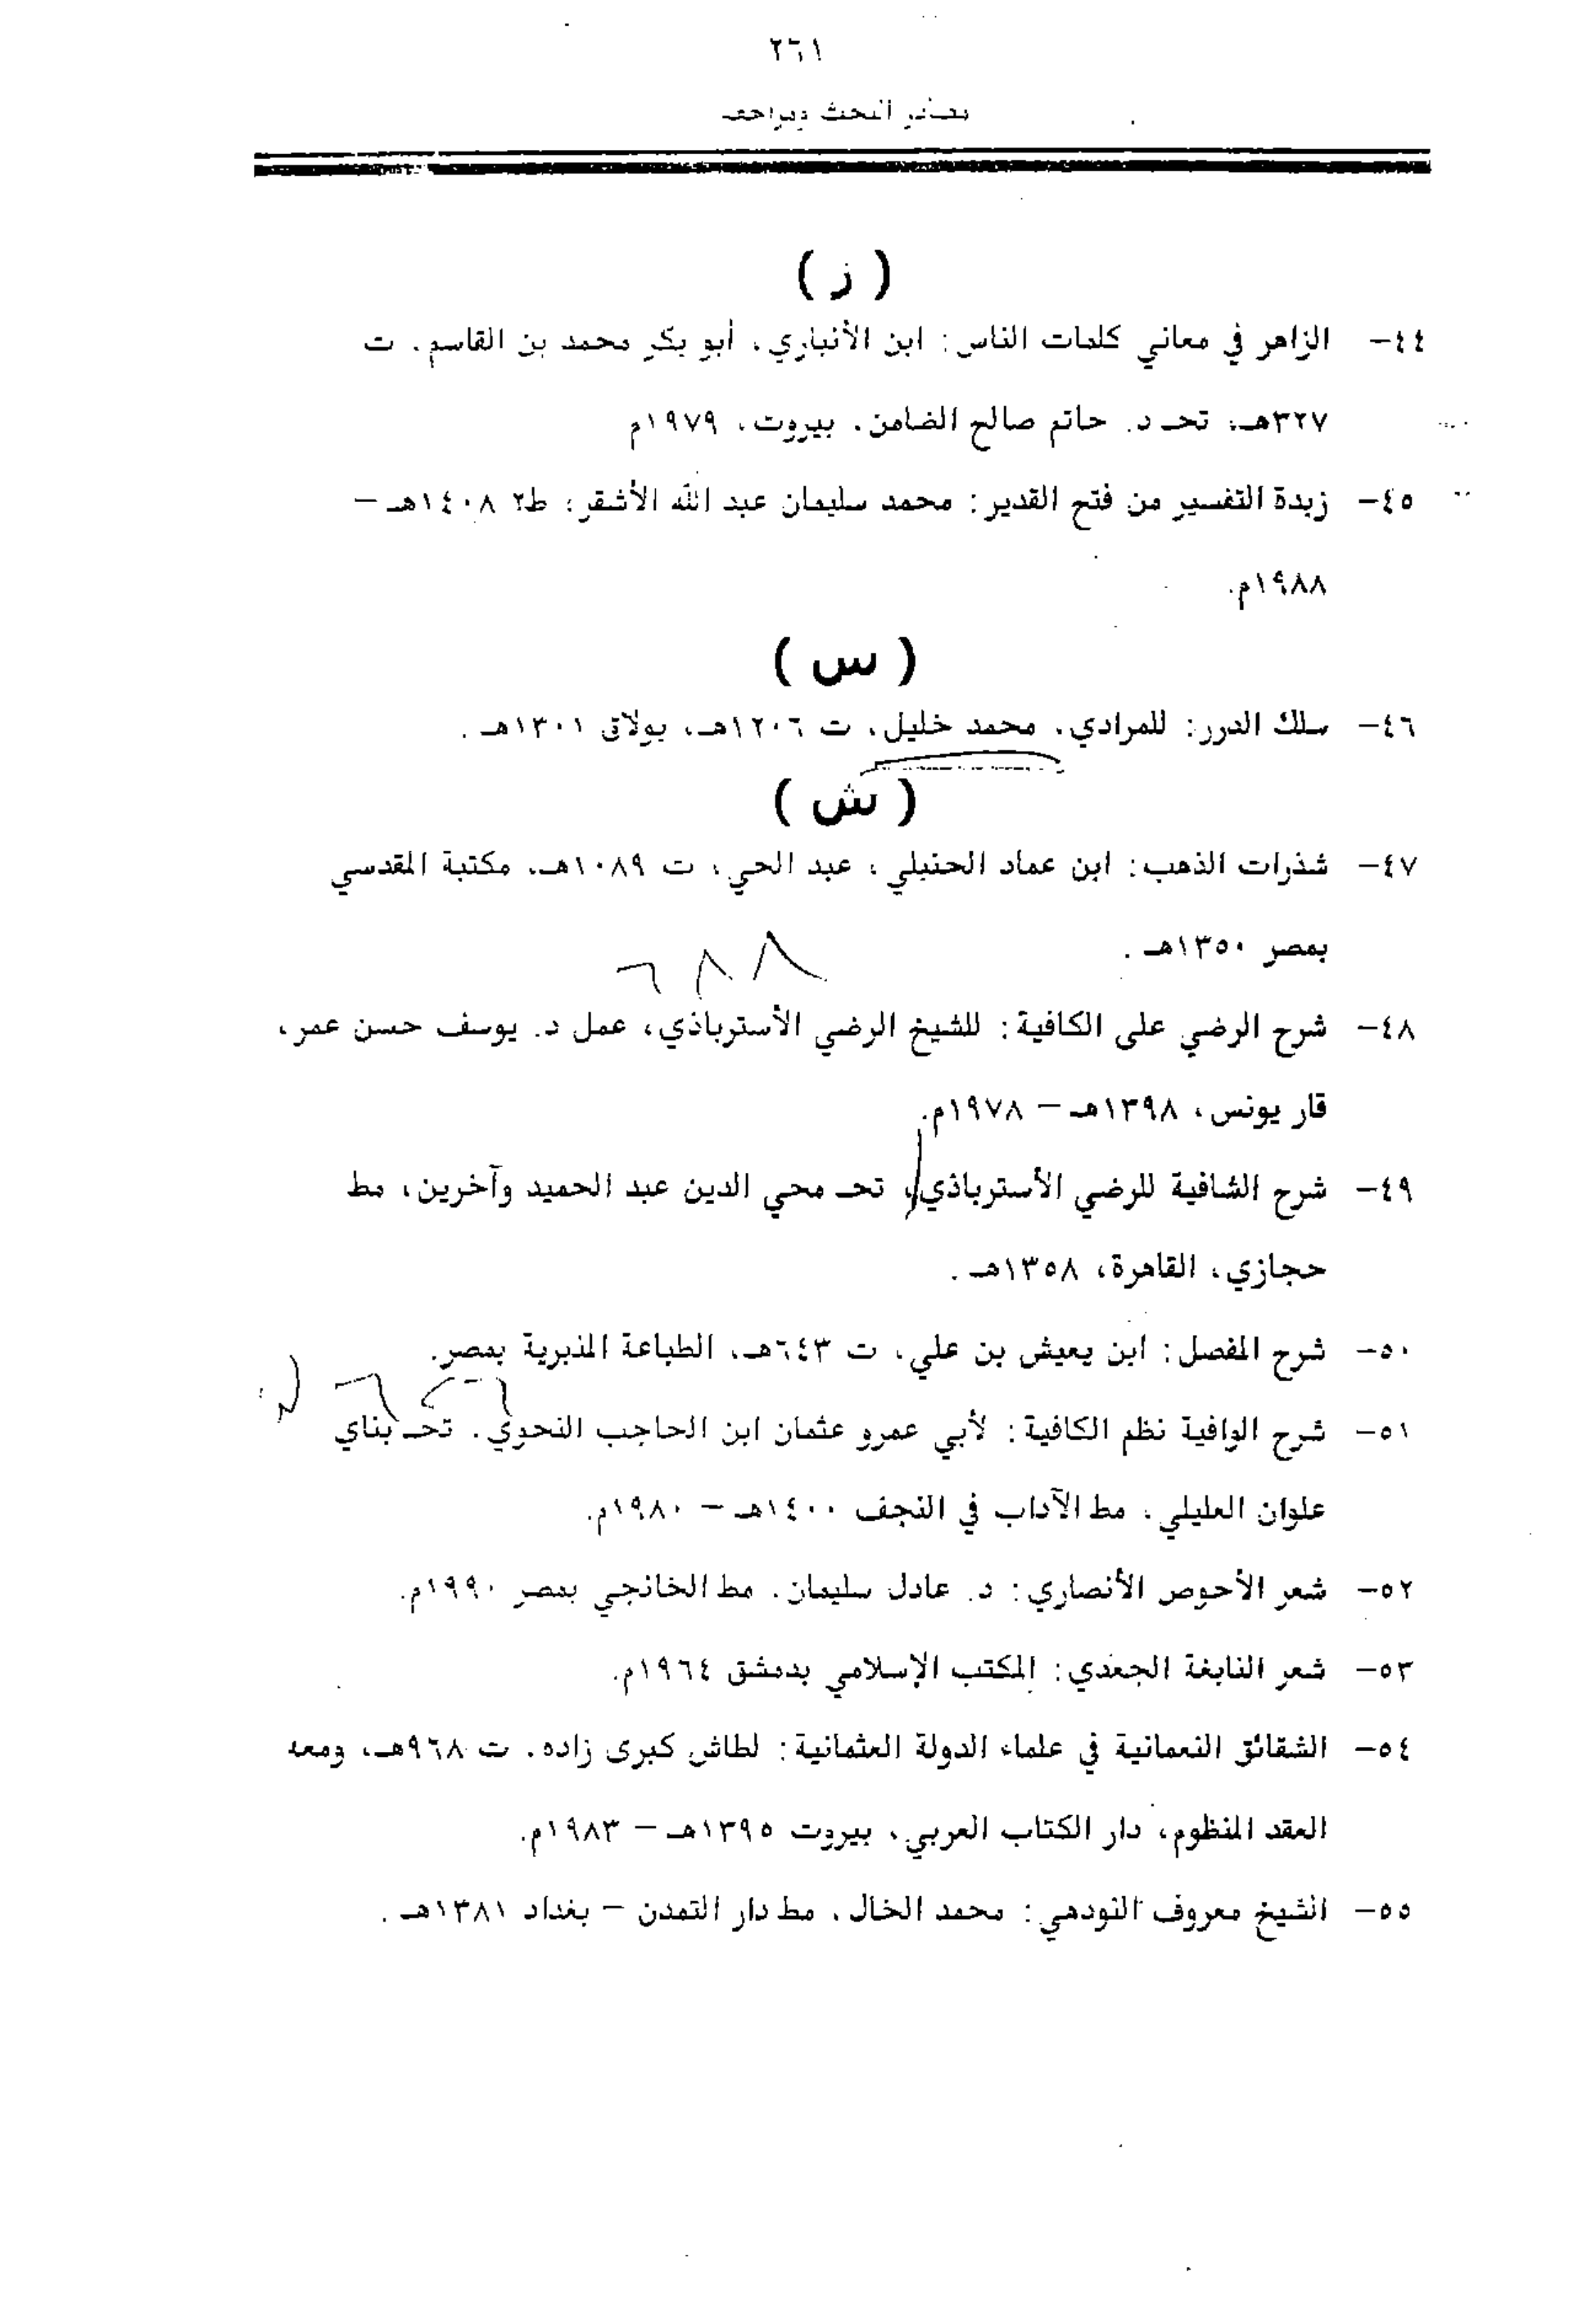 ٢٦١
مصادر البحث ومراجعه
( ز )
٤٤- الزاهر في معاني كلمات الناس: ابن الأنباري، أبو بكر محمد بن القاسم. ت
٣٢٧هـ، تحـ د. حاتم صالح الضامن. بيروت، ١٩٧٩م
٤٥- زبدة التفسير من فتح القدير: محمد سليمان عبد الله الأشقر، ط٢ ١٤٠٨هـ –
١٩٨٨م.
( س )
٤٦- سلك الدرر: للمرادي، محمد خليل، ت ١٢٠٦هـ، بولاق ١٣٠١هـ.
( ش )
٤٧- شذرات الذهب: ابن عماد الحنبلي، عبد الحي، ت ١٠٨٩هـ، مكتبة المقدسي
بمصر ١٣٥٠هـ.
٦٨٨
٤٨- شرح الرضي على الكافية: للشيخ الرضي الأسترباذي، عمل د. يوسف حسن عمر،
قار يونس، ١٣٩٨هـ – ١٩٧٨م.
٤٩- شرح الشافية للرضي الأسترباذي، تحـ محي الدين عبد الحميد وآخرين، مط
حجازي، القاهرة، ١٣٥٨هـ.
٥٠- شرح المفصل: ابن يعيش بن علي، ت ٦٤٣هـ، الطباعة المنبرية بمصر.
٥١- شرح الوافية نظم الكافية: لأبي عمرو عثمان ابن الحاجب النحوي. تحـ بناي
علوان العليلي، مط الآداب في النجف ١٤٠٠هـ – ١٩٨٠م.
٥٢- شعر الأحوص الأنصاري: د. عادل سليمان. مط الخانجي بمصر ١٩٩٠م.
٥٣- شعر النابغة الجعدي: المكتب الإسلامي بدمشق ١٩٦٤م.
٥٤- الشقائق النعمانية في علماء الدولة العثمانية: لطاش كبرى زاده. ت ٩٦٨هـ، ومعه
العقد المنظوم، دار الكتاب العربي، بيروت ١٣٩٥هـ – ١٩٨٣م.
٥٥- الشيخ معروف النودهي: محمد الخال، مط دار التمدن – بغداد ١٣٨١هـ.